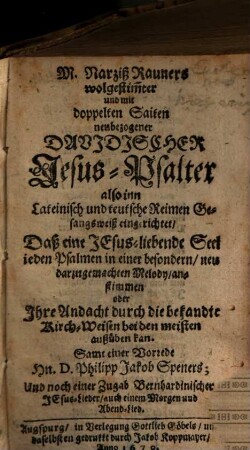 M. Narziß Rauners
wolgestim̃ter
und mit
doppelten Saiten
neubezogener
DAVIDISCHER
Jesus-Psalter
also inn
Lateinisch und teutsche Reimen Ge-
sangsweiß eingerichtet/
Daß eine JEsus-liebende Seel
ieden Psalmen in einer besondern/ neu
darzugemachten Melody/ an-
stimmen
oder
Ihre Andacht durch die bekandte
Kirch-Weisen bei den meisten
außüben kan.
Samt einer Vorrede
Hn. D. Philipp Jakob Speners;
Und noch einer Zugab Bernhardinischer
JEsus-Lieder/ auch einem Morgen und
Abend-Lied.
Augspurg/ in Verlegung Gottlieb Göbels/ und
daselbsten gedruckt durch Jakob Koppmayer/
Anno 1670.